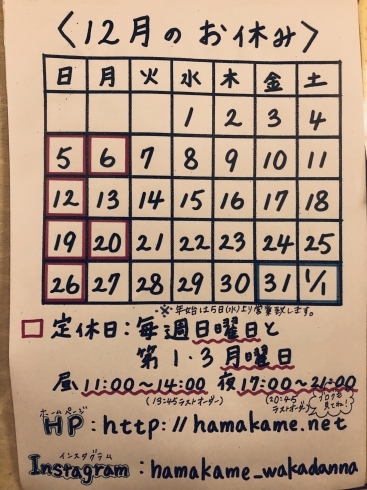 〈12月のお休み〉
日 月 火 水 木 金 土
1 2 3 4
5 6 7 8 9 10 11
12 13 14 15 16 17 18
19 20 21 22 23 24 25
26 27 28 29 30 31 1/1
※年始は5日(水)より営業致します。
定休日:毎週日曜日と
第1・3月曜日
昼11:00〜14:00 夜17:00〜21:00
(13:45ラストオーダー) (20:45ラストオーダー)
ブログも見てね!
ホームページ
HP:http://hamakame.net
インスタグラム
Instagram:hamakame_wakadanna